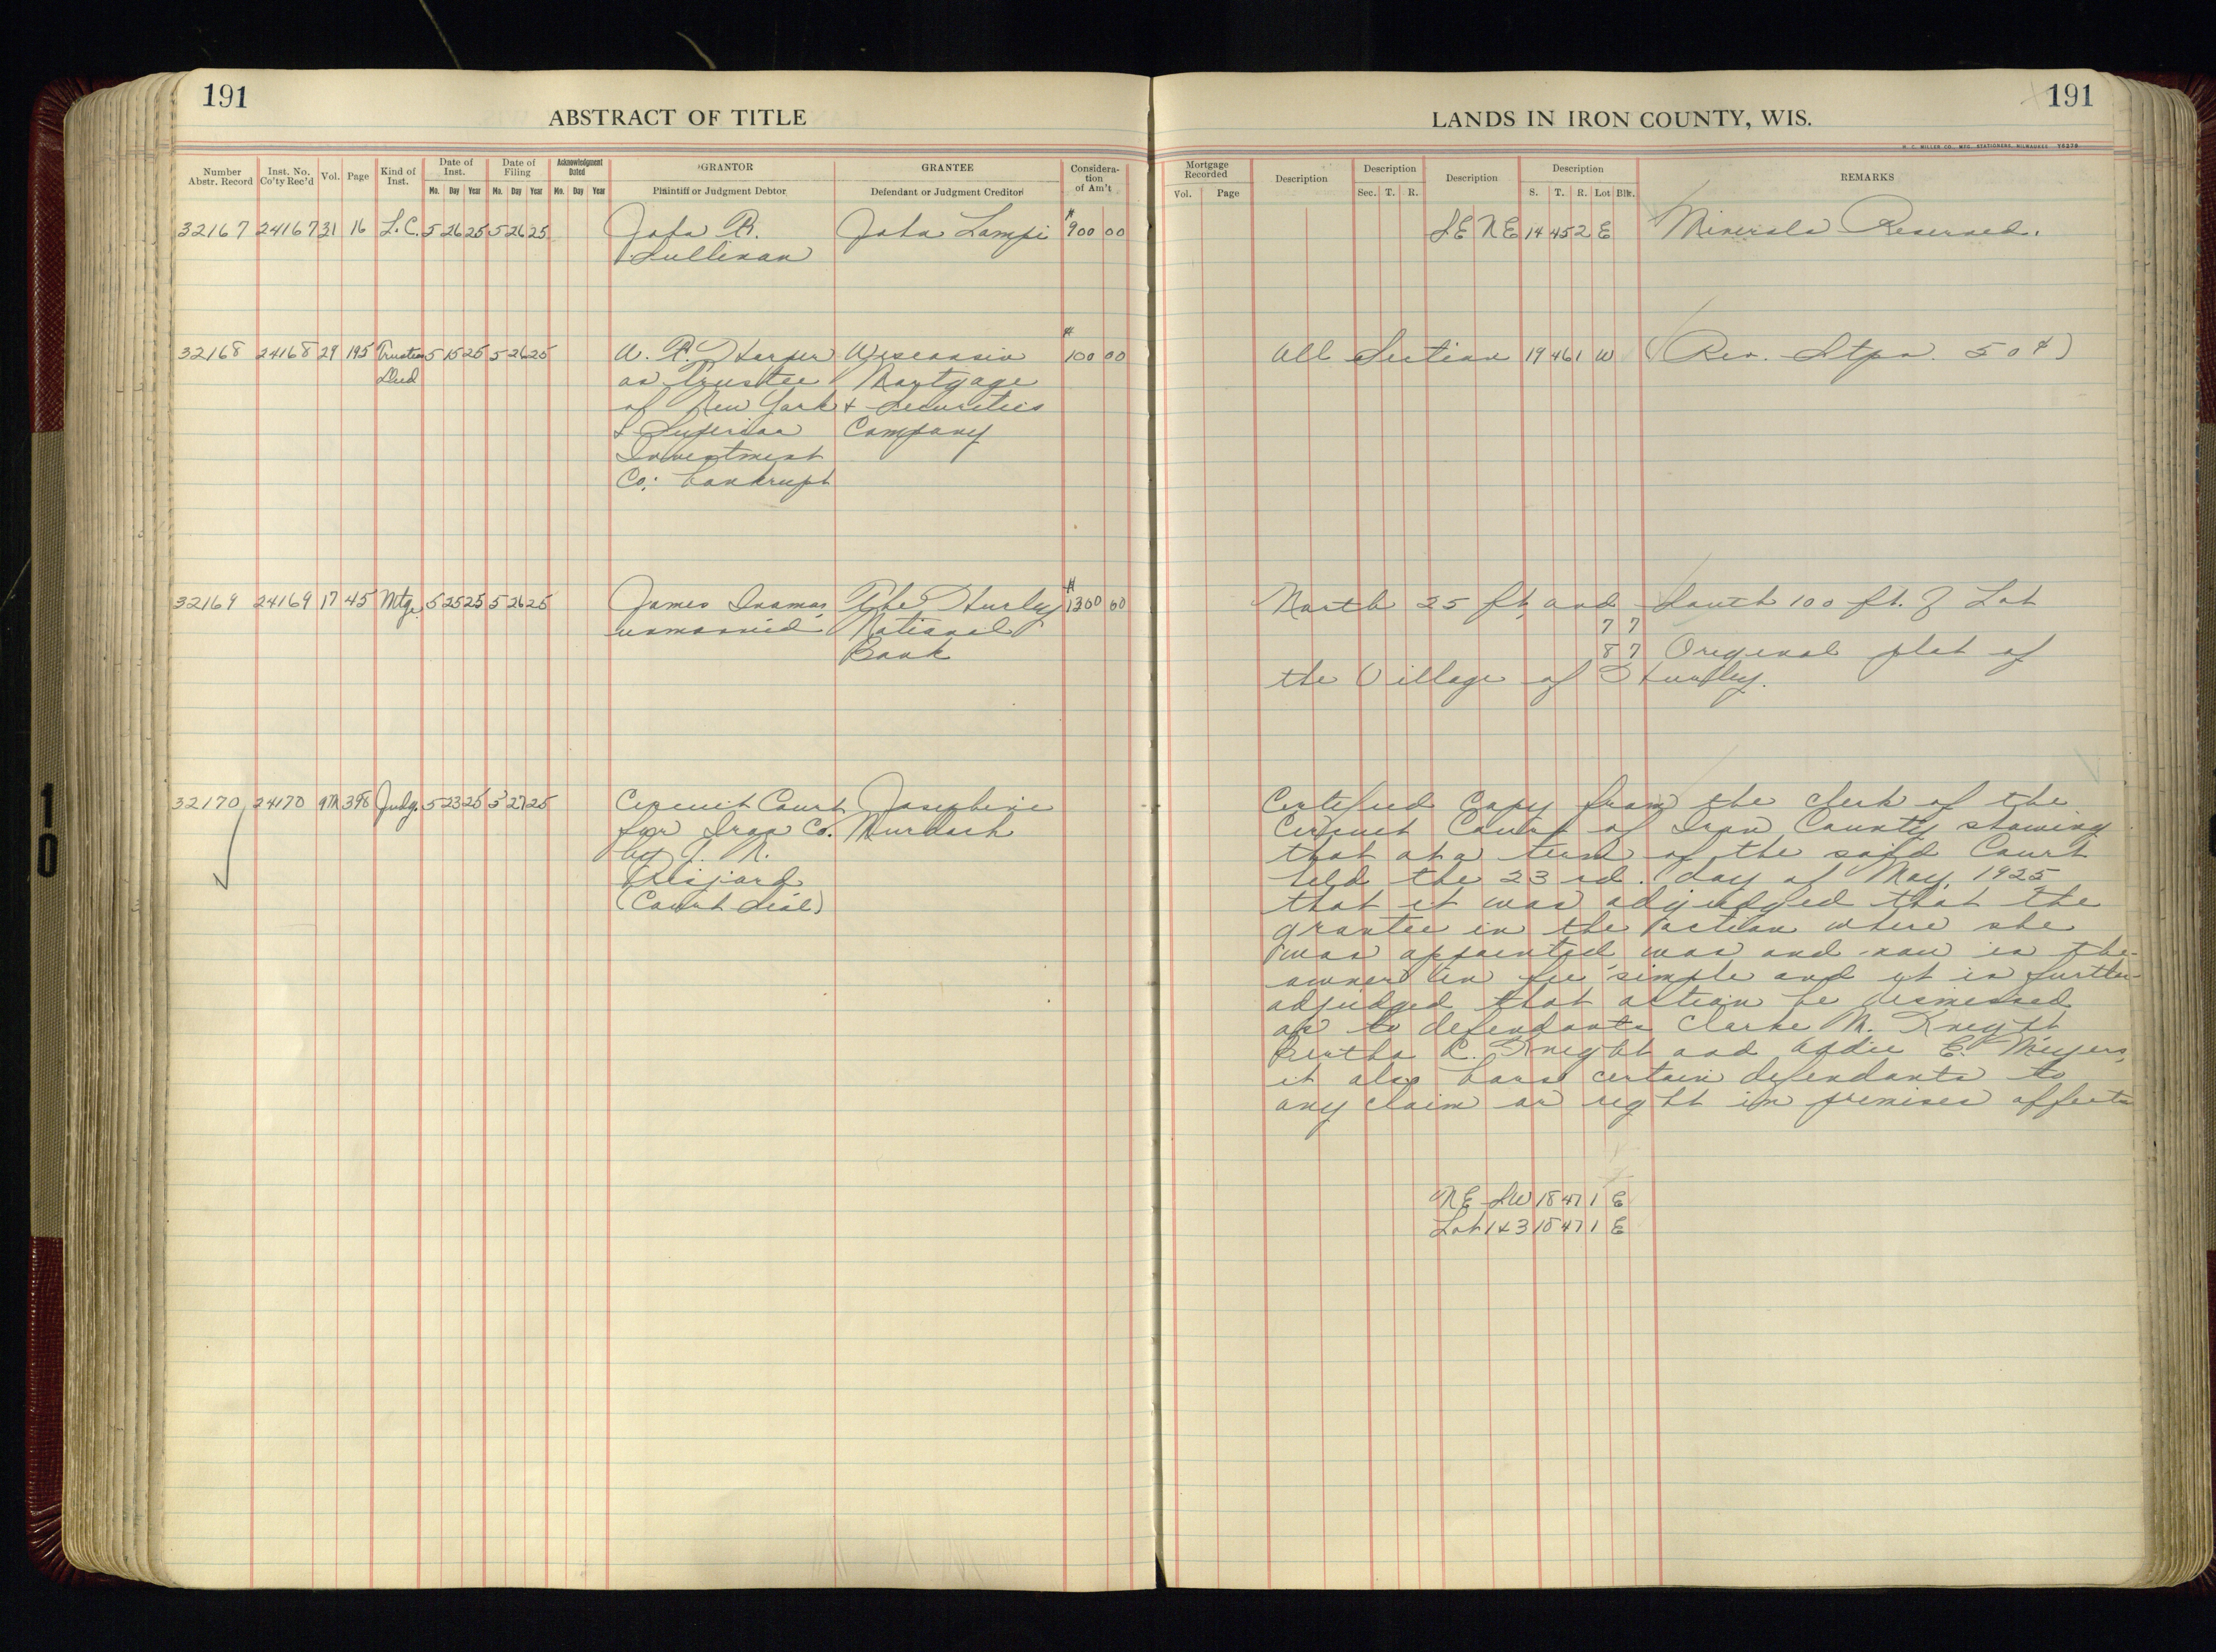 191
ABSTRACT OF TITLE
Number Abstr. Record
Inst. No. Co'ty Rec'd
Vol.
Page
Kind of Inst.
Date of Inst.
Mo. Day Year
Date of Filing
Mo. Day Year
Acknowledgment Dated
Mo. Day Year
GRANTOR
Plaintiff or Judgment Debtor
GRANTEE
Defendant or Judgment Creditor
Considera-tion of Am't
32167 24167 31 16 L.C. 5 26 25 5 26 25 John R. John Lampi $900 00
Sullivan
32168 24168 29 195 Trustees 5 15 25 5 26 25 W. P. Harper Wisconsin $100 00
Deed as Trustee Mortgage
of New York & Securities
& Superior Company
Investment
Co. bankrupt
32169 24169 17 45 Mtg. 5 25 25 5 26 25 James Inamas The Hurley $1300 00
unmarried National
Bank
32170 24170 9M 398 Judg. 5 23 25 5 27 25 Circuit Court Josephine
for Iron Co. Murdock
by J. R.
(Court Seal)
191
LANDS IN IRON COUNTY, WIS.
H. C. MILLER CO., MFG. STATIONERS, MILWAUKEE
Mortgage Recorded
Vol. Page
Description
Description
Sec. T. R.
Description
Description
S. T. R. Lot Blk.
REMARKS
SE NE 14 45 2 E Minerals Reserved.
All Section 19 46 1 W (Rev. Stps. 50¢)
North 25 ft. and South 100 ft. of Lot
7 7
8 7 Original plat of
the Village of Hurley.
Certified Copy from the clerk of the
Circuit Court of Iron County showing
that at a term of the said Court
held the 23rd. day of May, 1925
that it was adjudged that the
grantee in the action where she
was appointed was and now is the
owner in fee simple and it is further
adjudged that action be dismissed
as to defendants Clarke M. Knight
Bertha C. Knight and Addie E. Meyers,
it also bars certain defendants to
any claim or right in premises affects
NE SW 18 47 1 E
Lot 1 & 3 18 47 1 E